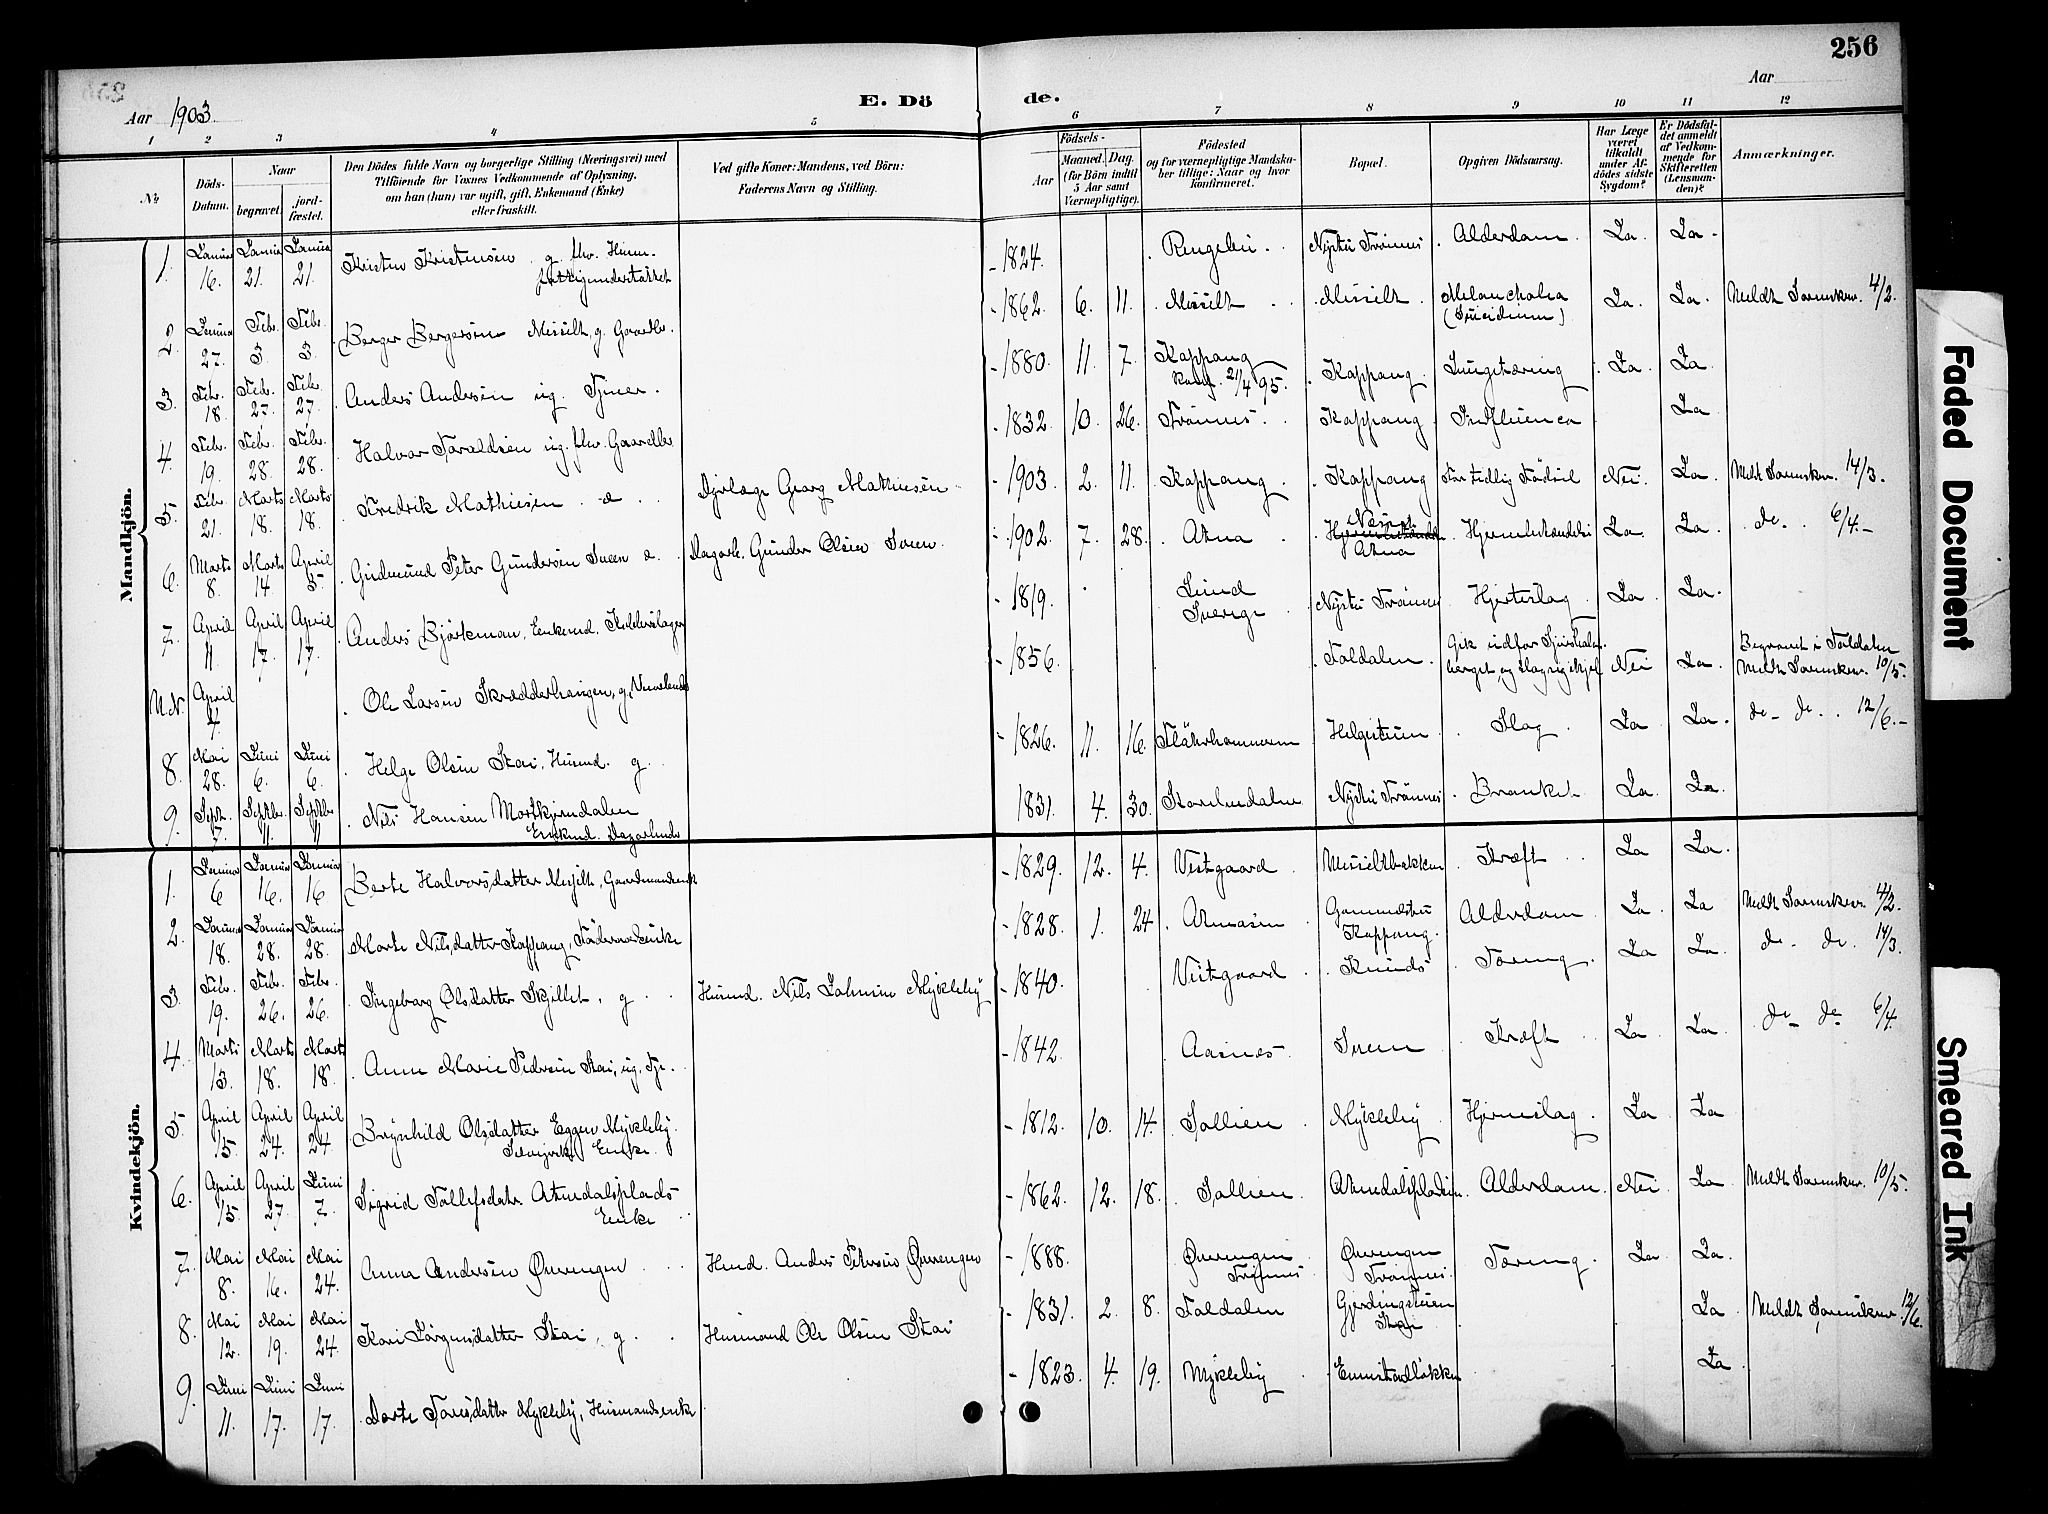 256
Aar 1903. E. Dö de. Aar
1 2 3 4 5 6 7 8 9 10 11 12
No Döds-Datum. Naar begravet. jord-fæstet. Den Dödes fulde Navn og borgerlige Stilling (Næringsvei) med Tilföiende for Voxnes Vedkommende af Oplysning, om han (hun) var ugift, gift, Enkemand (Enke) eller fraskilt. Ved gifte Koner: Mandens, ved Börn: Faderens Navn og Stilling. Födsels- Aar Maaned. Dag. (for Börn indtil 5 Aar samt Værnepligtige). Födested og for værnepligtige Mandskaber tillige: Naar og hvor konfirmeret. Bopæl. Opgiven Dödsaarsag. Har Læge været tilkaldt under Afdödes sidste Sygdom? Er Dödsfaldet anmeldt af Vedkommende for Skifteretten (Lensmanden)? Anmærkninger.
Mandkjön.
1. Januar 16. Januar 21. Januar 21. Kristen Kristensen g. fhv. Husm. fattigunderstøttet 1824. Ringebu Nystu Trønnes Alderdom Ja Ja
2. Januar 27. Febr. 3. Febr. 3. Berger Bergersen Messelt, g. Gaardbr. 1862. 6. 11. Messelt Messelt Melancholia (Suicidium) Ja Ja Meldt Sorenskr. 4/2.
3. Febr. 18. Febr. 27. Febr. 27. Anders Andersen ug. Tjener. 1880. 11. 7. Koppang konf. 21/4 95. Koppang Lungetæring Ja Ja
4. Febr. 19. Febr. 28. Febr. 28. Halvor Taraldsen ug. fhv. Gaardbr. 1832. 10. 26. Trønnes Koppang Influenca Ja
5. Febr. 21. Marts 18. Marts 18. Fredrik Mathiesen Dyrlæge Georg Mathiesen 1903. 2. 11. Koppang Koppang For tidlig Fødsel Nei Ja Meldt Sorenskr. 14/3.
6. Marts 8. Marts 14. April 5. Gudmund Peter Gundersen Sneen Dagarb. Gunder Olsen Sneen 1902. 7. 28. Atna Atna Hjernebetændelse Ja Ja do. 6/4.
7. April 11. April 17. April 17. Anders Bjørkman, Enkemd. 1819. Lund Sverige Nystu Trønnes Hjerteslag Ja Ja
April 4. Ole Larsen Skrædderhaugen, g. 1856. Foldalen Nei Ja Begravet i Foldalen Meldt Sorenskr. 10/5.
8. Mai 28. Juni 6. Juni 6. Helge Olsen Skai, Husmd. g. 1826. 11. 16. Helgestuen Slag Ja Ja do. do. 12/6.
9. Septr. 7. Septbr. 11. Septbr. 11 Nils Hansen Enkemd. Dagarbeider 1831. 4. 30. Nystu Trønnes Bronket. Ja Ja
Kvindekjön.
1. Januar 6 Januar 16. Januar 16 Berte Halvorsdatter Messelt, Gaardmandsenke 1829. 12. 4. Vestgaard Messeltbakken Kræft Ja Ja
2. Januar 18. Januar 28. Januar 28. Marte Nilsdatter Koppang, Føderaadsenke 1828. 1. 24 Atnaosen Gammelstu Koppang Alderdom Ja Ja Meldt Sorenskr. 4/2.
3. Febr. 19. Febr. 26. Febr. 26. Ingeborg Olsdatter Skjellet, g. Husmd. Nils Johnsen Mykleby 1840. Vestgaard Tæring Ja Ja do. do. 14/3.
4. Marts 13. Marts 18. Marts 18. Anne Marie Pedersen Skai, ug. Tje. 1842. Aasnes Sneen Kræft Ja Ja do. do. 6/4.
5. April 15. April 24. April 24. Brynhild Olsdatter Eggen Mykleby. Enke. 1812. 10. 14. Sollien Mykleby Hjerneslag Ja Ja
6. April 15. April 27. Juni 7. Sigrid Tollefsdatr. Atnedalsplads Enke 1862. 12. 18. Sollien Atnedalspladsen Alderdom Nei Ja Meldt Sorenskr. 10/5.
7. Mai 8. Mai 16. Mai 24. Anna Andersen Øverengen Husmd. Anders Petersen Øverengen 1888. Øverengen Trønnes Øverengen Trønnes Tæring Ja Ja
8. Mai 12. Mai 19. Mai 24. Kari Jørgensdatter Skai, g. Husmand Ole Olsen Skai 1831. 2. 8. Foldalen Gjerdingstuen Skai Ja Meldt Sorenskr. 12/6.
9. Juni 11. Juni 17. Juni 17. Dorte Toresdatter Mykleby, Husmandsenke 1823. 4. 19. Mykleby Ja
Faded Document
Smeared Ink